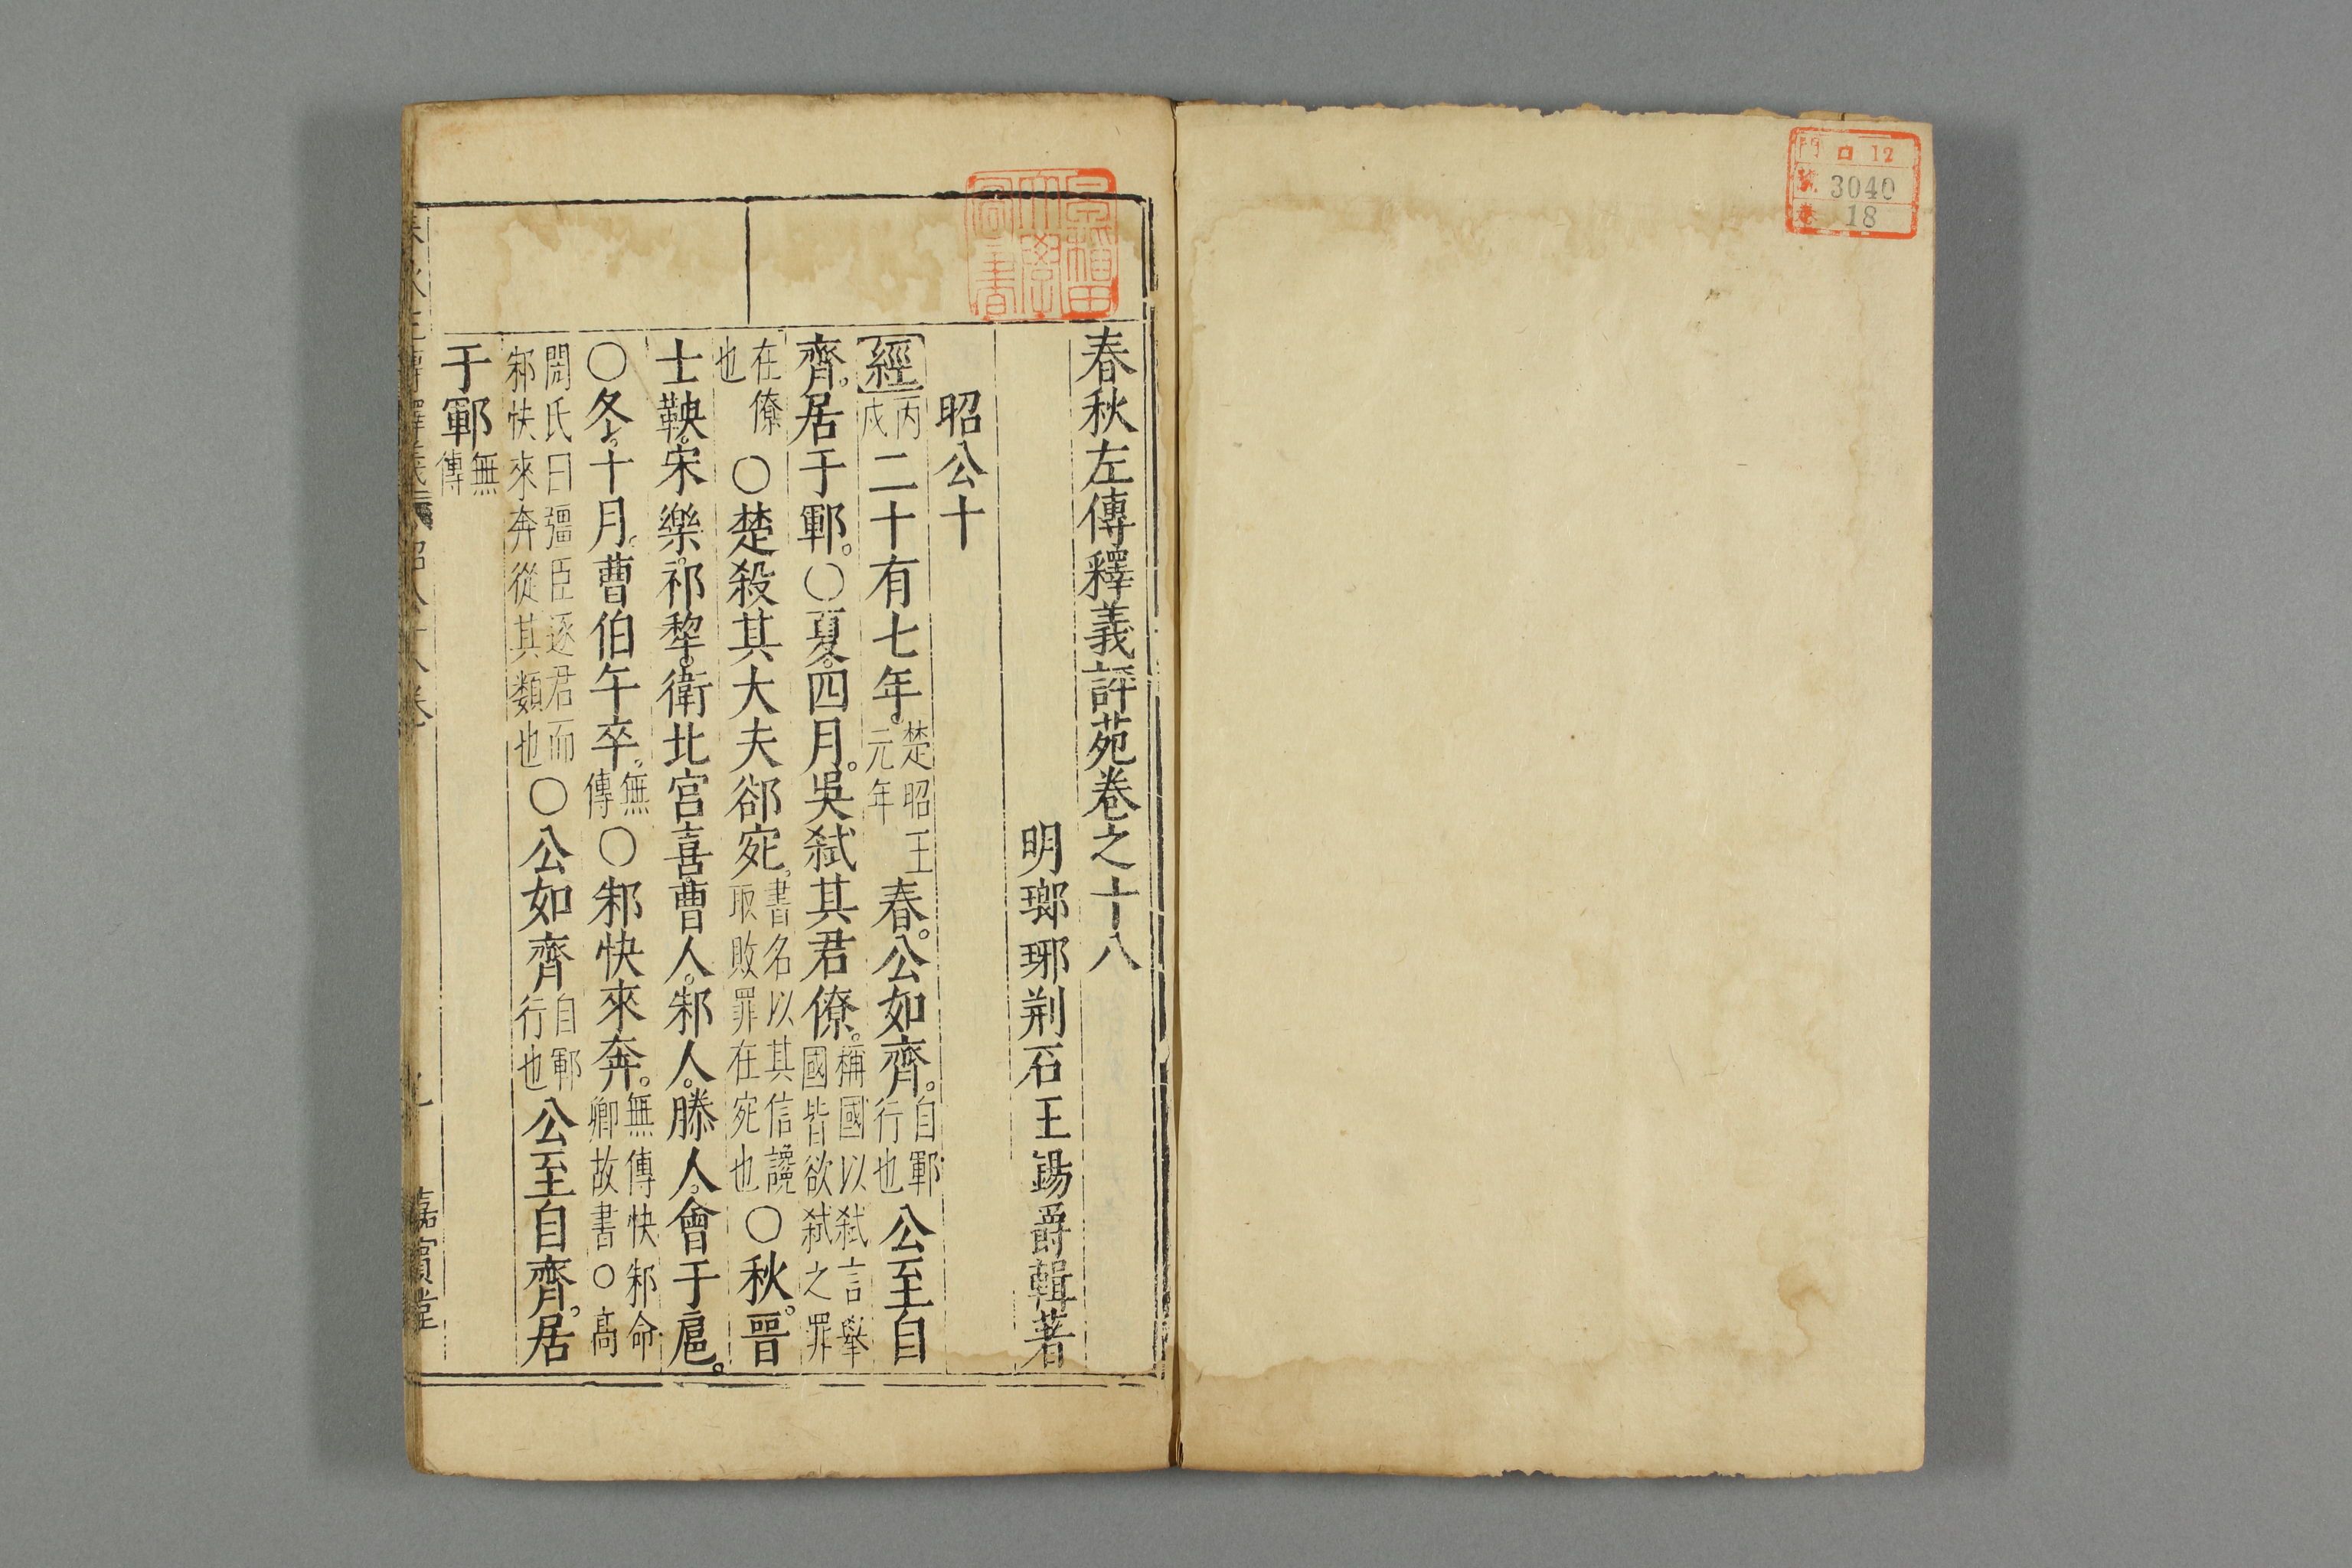 門 ロ 12
號 3040
卷 18
早稲田大學圖書
春秋左傳釋義評苑卷之十八
明瑯琊荆石王錫爵輯著
昭公十
經丙戌二十有七年。楚昭王元年春。公如齊。自鄆行也公至自
齊。居于鄆。〇夏。四月。吳弑其君僚。稱國以弑言舉國皆欲弑之罪罪
在僚也〇楚殺其大夫郤宛。書名以其信讒取敗罪在宛也〇秋。晉
士鞅。宋樂。祁犂。衛北宮喜。曹人。邾人。滕人。會于扈。
〇冬。十月。曹伯午卒。無傳〇邾快來奔。無傳快邾命卿故書〇高
閌氏曰彊臣逐君而邾快來奔從其類也〇公如齊自鄆行也公至自齊。居
于鄆無傳
昭公十八卷
嘉賓堂